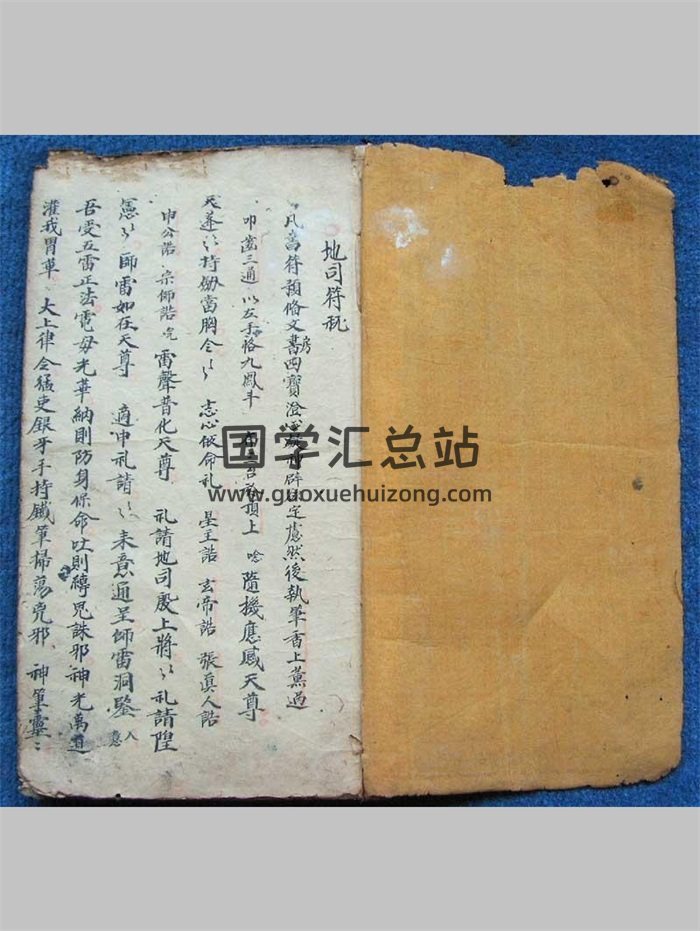 地司符秘
凡書符預俻文房四寶澄心定慮然後執筆香上薰過
叩齒三通以左手掐九鳳斗頂上唸隨機應感天尊
天尊〻持劄當胸念〻志心皈命礼星主誥玄帝誥張真人誥
申公誥宗師誥完雷聲普化天尊礼請地司殷上將〻礼請隍
〻師雷如在天尊適申礼請〻未意通呈師雷洞鑒
吾受五雷正法電母光華納則防身保命吐則縛鬼誅邪神光萬道
灌我胃中大上律令猛吏銀牙手持鐵筆掃蕩兇邪神筆靈〻
国学汇总站
www.guoxuehuizong.com